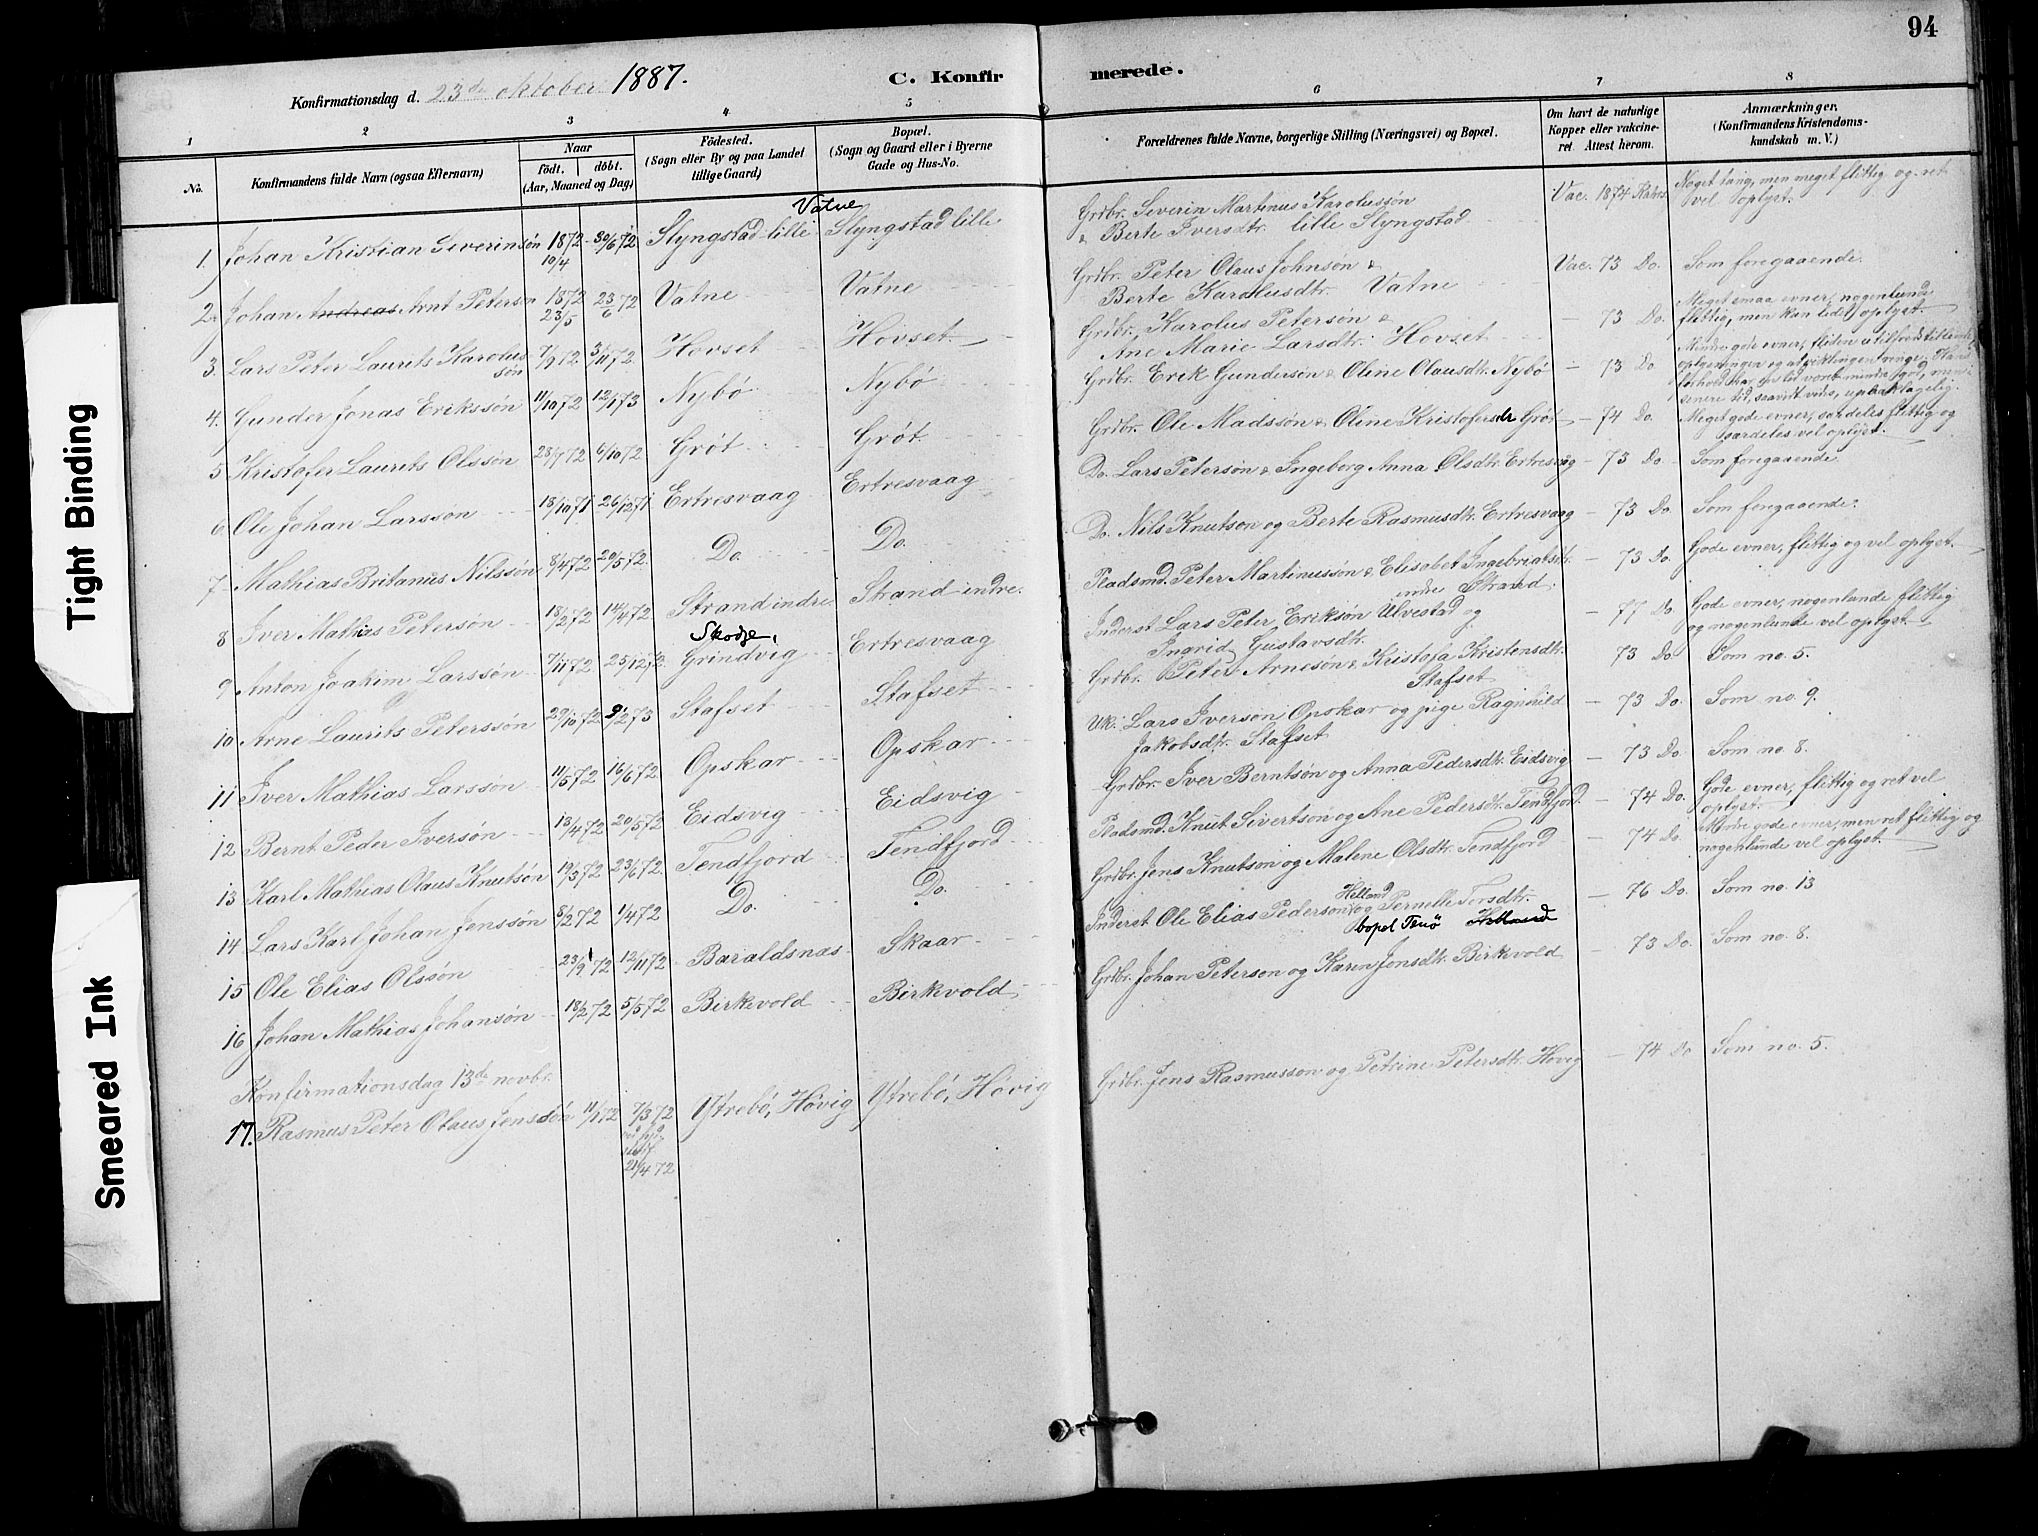 94
Konfirmationsdag d. 23de oktober 1887.
C. Konfirmerede.
1 2 3 4 5 6 7 8
No.
Konfirmandens fulde Navn (ogsaa Efternavn)
Naar
födt. döbt.
(Aar, Maaned og Dag)
Födested.
(Sogn eller By og paa Landet
tillige Gaard)
Bopæl.
(Sogn og Gaard eller i Byerne
Gade og Hus-No.
Forældrenes fulde Navne, borgerlige Stilling (Næringsvei) og Bopæl.
Om havt de naturlige
Kopper eller vakcineret.
Attest herom.
Anmærkninger.
(Konfirmandens Kristendomskundskab
m. V.)
Vatne
1. Johan Kristian Severinsön 1872 10/4 30/6 72 Slyngstad lille Slyngstad lille
Grdbr. Severin Martinus Karolussön
& Berte Iversdtr. lille Slyngstad
Vac. 1874
Noget tung, men meget flittig og ret
vel oplyst.
2. Johan Andreas Arnt Peterson 1872 23/5 23/6 72 Vatne Vatne
Grdbr. Peter Olaus Johnsön &
Berte Karolusdtr. Vatne
Vac. 73 Do. Som foregaaende.
3. Lars Peter Laurits Karolussön 7/9 72 3/11 72 Hovset Hovset
Grdbr. Karolus Petersön &
Ane Marie Larsdtr. Hovset
— 73 Do. Meget smaa evner, nogenlunde
flittig, men kun lidet oplyst.
4. Gunder Jonas Erikssön 11/10 72 12/1 73 Nybö Nybö
Grdbr. Erik Gundersön & Oline Olausdtr. Nybö
— 73 Do
Mindre gode evner, fliden utilfredsstillende,
5 Kristofer Laurits Olssön 28/7 72 6/10 72 Gröt Gröt
Grdbr. Ole Madssön & Oline Kristofersdr Gröt
— 74 Do. Meget gode evner, særdeles flittig og
særdeles vel oplyst.
6 Ole Johan Larsson 18/10 71 26/12 71 Ertresvaag Ertresvaag
Do. Lars Petersön & Ingeborg Anna Olsdtr. Ertresvåg
— 73 Do. Som foregaaende
7 Mathias Britanus Nilssön 8/4 72 20/5 72. Do. Do.
Do. Nils Knutson og Berte Rasmusdtr. Ertresvaag
— 73 Do. Som foregaaende.
8 Iver Mathias Petersön 18/2 72 14/4 72 Strand indre. Strand indre.
Pladsmd. Peter Martinussön & Elisabet Ingebrigtsdtr.
indre Strand.
— 73 Do. Gode evner, flittig og vel oplyst.
Skodje,
9 Anton Joakim Larssön 7/11 72 25/12 72. Grindvig Ertresvaag
Inderst Lars Peter Eriksön Ulvestad og
Ingrid Gustavsdtr.
— 77 Do. Gode evner, nogenlunde flittig
og nogenlunde vel oplyst.
10 Arne Laurits Peterssön 29/10 72 9/2 73 Stafset Stafset
Grdbr. Peter Arnesön & Kristofa Kristensdtr.
Stafset
73 Do. Som no. 5.
11 Iver Mathias Larssön 11/5 72 16/6 72. Opskar Opskar
Uk. Lars Iversön Opskar og pige Ragnhild
Jakobsdtr. Stafset
— 73 Do. Som no. 9.
12 Bernt Peder Iversön 13/4 72 20/5 72 Eidsvig Eidsvig
Grdbr. Iver Berntsön og Anna Pedersdtr. Eidsvig
— 73 Do. Som no. 8.
13 Karl Mathias Olaus Knutsön 19/3 72 23/6 72. Tendfjord Tendfjord
Pladsmd. Knut Sivertsön og Ane Pedersdtr. Tendfjord.
— 74 Do. Gode evner, flittig og ret vel
oplyst.
14 Lars Karl Johan Jenssön 8/2 72 1/4 72 Do. Do.
Grdbr. Jens Knutsön og Malene Olsdtr. Tendfjord
— 74 Do. Mindre gode evner, men ret flittig og
nogenlunde vel oplyst.
15 Ole Elias Olssön 23/9 72 12/11 72 Baraldsnæs Skaar
Inderst Ole Elias Pederson Helland og Pernelle Torsdtr.
bopel Tenö Helland
— 76 Do. Som no. 13
16 Johan Mathias Johansön 18/2 72 5/5 72 Birkevold Birkevold
Grdbr. Johan Peterson og Karen Jonsdtr. Birkevold
— 73 Do. Som no. 8.
Konfirmationsdag 13de novbr.
17. Rasmus Peter Olaus Jenssön 11/1 72 7/3 72 Ytrebö, Hövig Ytrebö, Hövig
21/4 72
Grdbr. Jens Rasmusson og Petrine Petersdtr. Hovig
— 74 Do Som no. 5.
Tight Binding
Smeared Ink